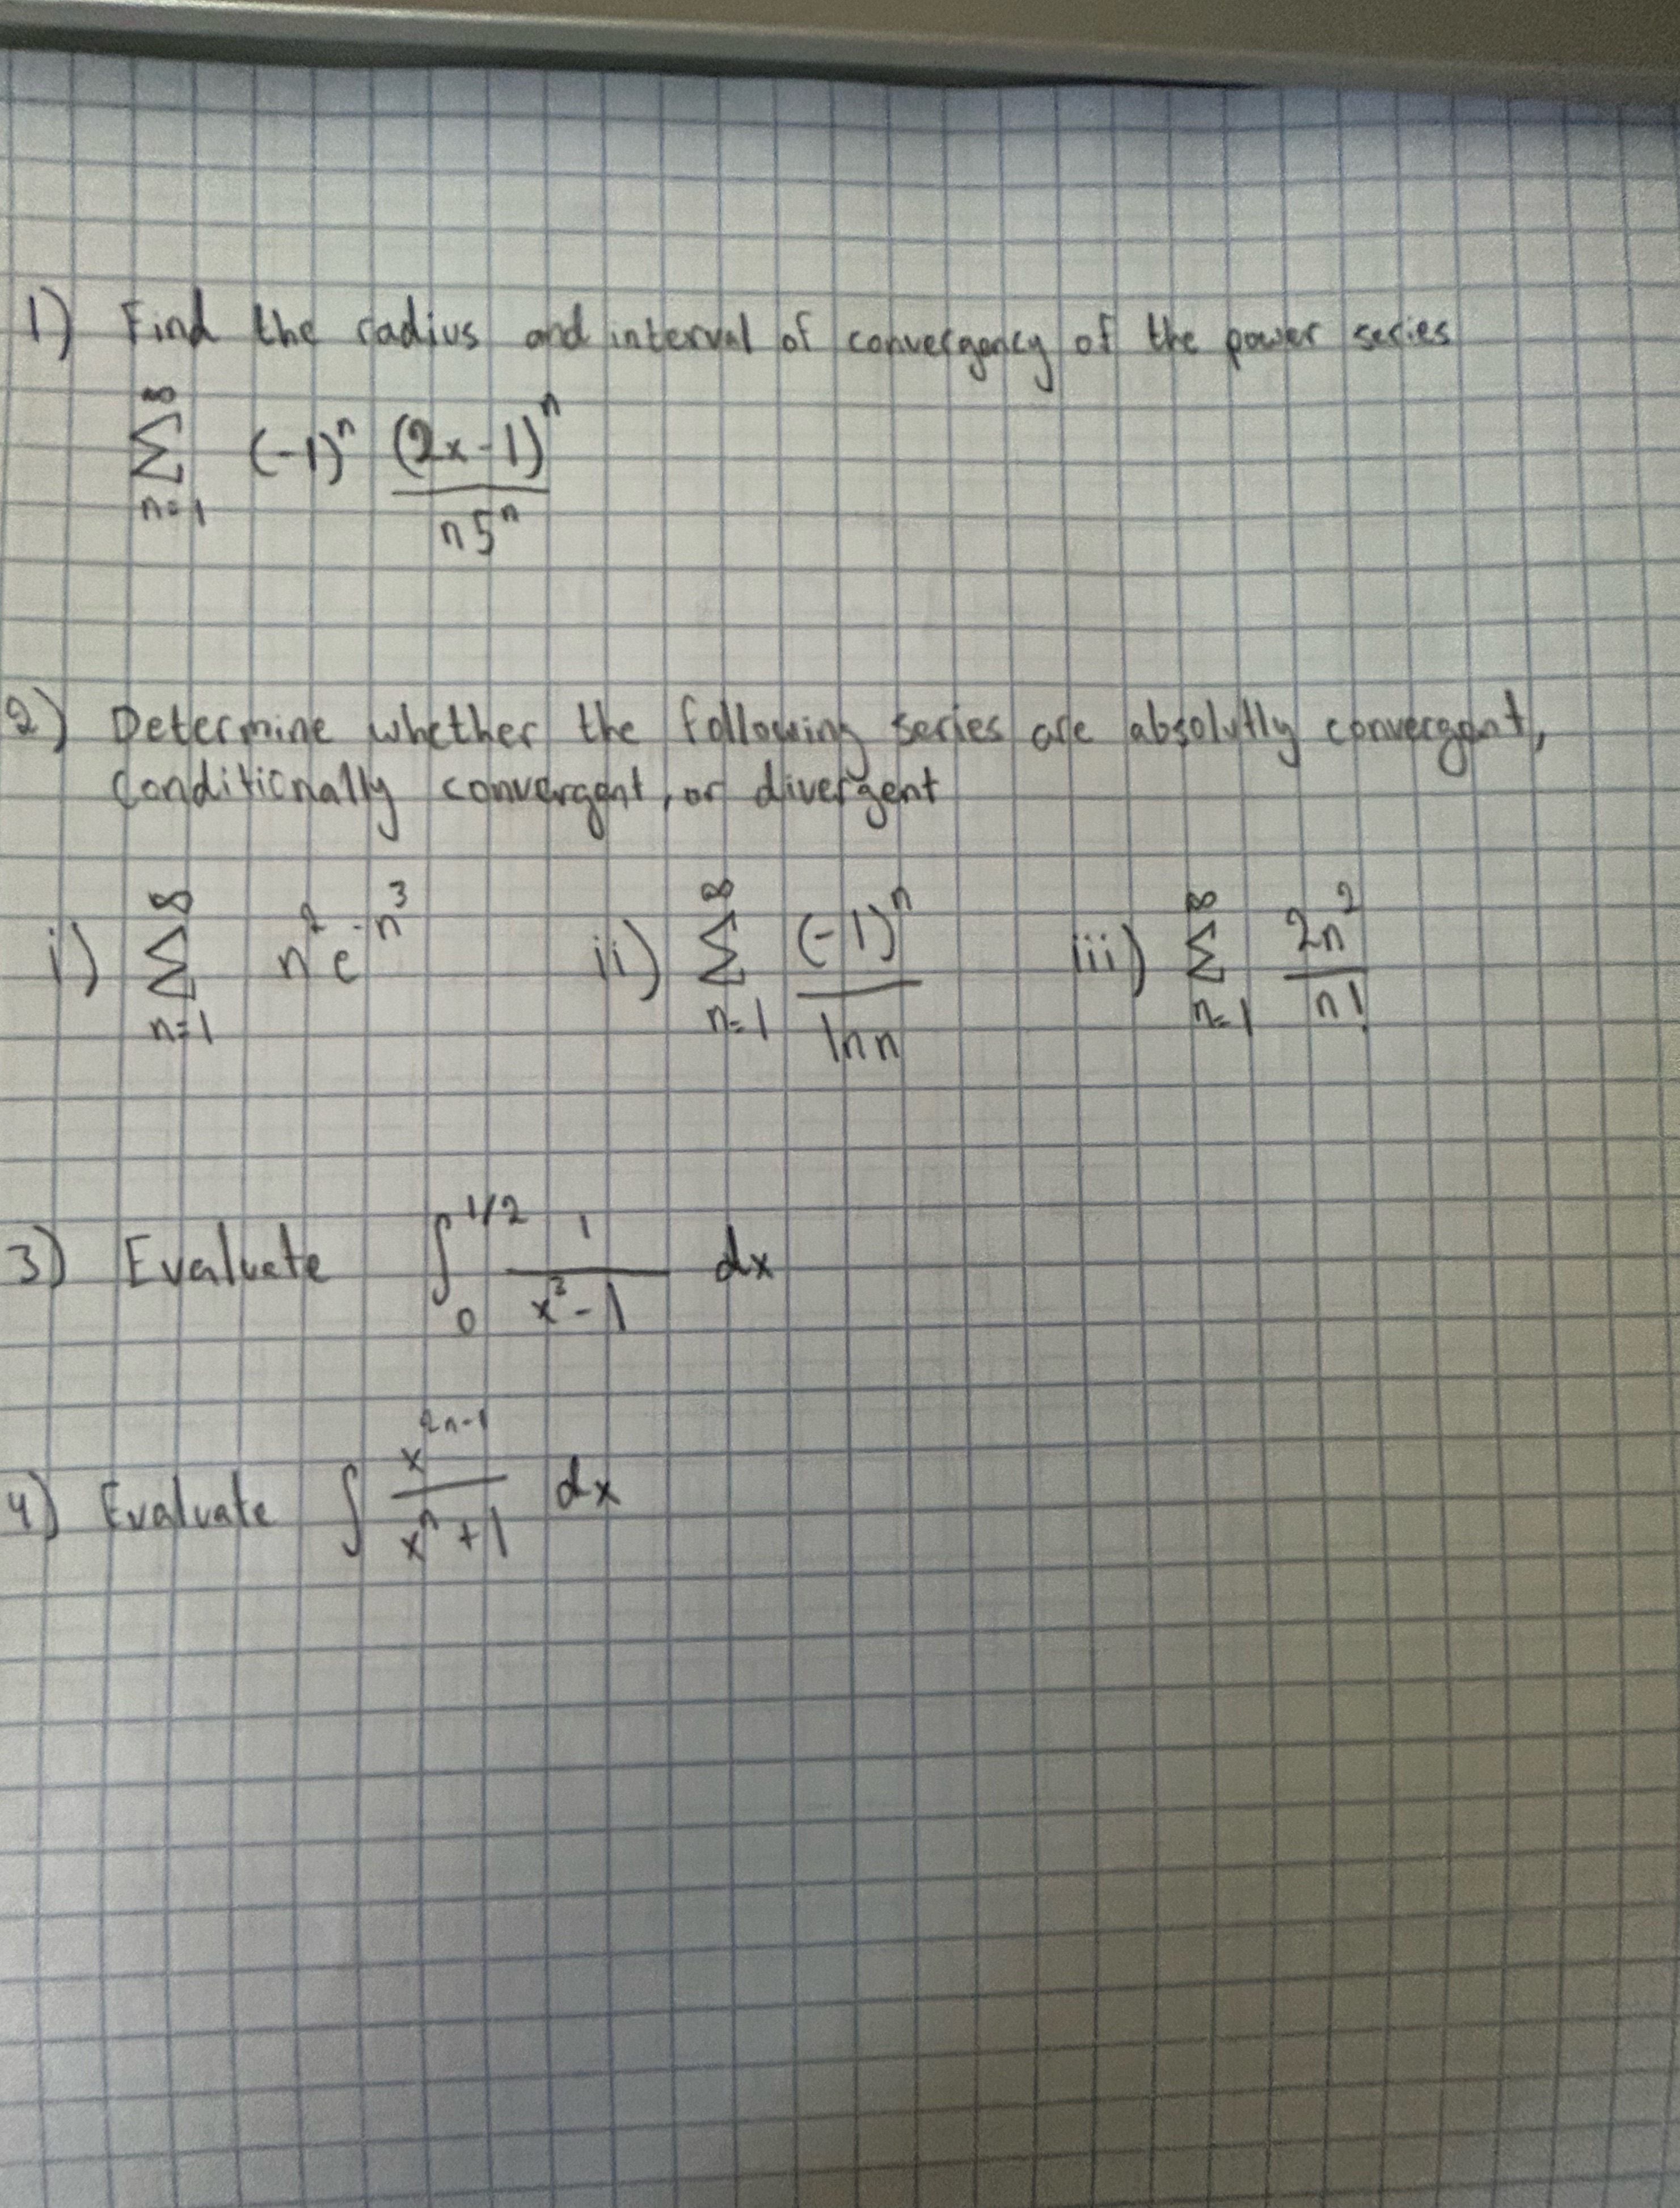 1) Find the radius and interval of convergency of the power series
∞∑n=1 (-1)^n (2x-1)^n / n5^n
2) Determine whether the following series are absolutly convergent,
conditionally convergent, or divergent
i) ∞∑n=1 n^2 e^-n^3 ii) ∞∑n=1 (-1)^n / ln n iii) ∞∑n=1 2n^2 / n!
3) Evaluate ∫0^1/2 1 / x^3-1 dx
4) Evaluate ∫ x^2n-1 / x^n+1 dx